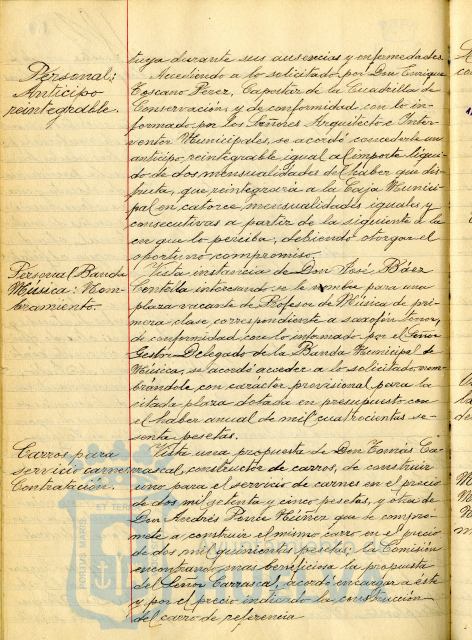 tuya durante sus ausencias y enfermedades.
Personal:
Anticipo
reintegrable.
Accediendo a lo solicitado por Don Enrique
Toscano Perez, Capataz de la Cuadrilla de
Conservación, y de conformidad con lo in-
formado por los Señores Arquitecto e Inter-
ventor Municipales, se acordó concederle un
anticipo reintegrable igual al importe líqui-
do de dos mensualidades del haber que dis-
fruta, que reintegrará a la Caja Munici-
pal en catorce mensualidades iguales y
consecutivas a partir de la siguiente a la
en que lo perciba, debiendo otorgar el
oportuno compromiso.
Personal Banda
Música: Nom-
bramiento.
Vista instancia de Don José Báez
Centella interesando se le nombre para una
plaza vacante de Profesor de Música de pri-
mera clase, correspondiente a saxofón tenor,
de conformidad con lo informado por el Señor
Gestor Delegado de la Banda Municipal de
Música, se acordó acceder a lo solicitado nom-
brándole con carácter provisional para la
citada plaza dotada en presupuesto con
el haber anual de mil cuatrocientas se-
senta pesetas.
Carros para
servicio carnes:
Contratación.
Vista una propuesta de Don Tomás Ca-
rrascal, constructor de carros, de construir
uno para el servicio de carnes en el precio
de dos mil setenta y cinco pesetas, y otra de
Don Andrés Núñez que se compro-
mete a construir el mismo carro en el precio
de dos mil quinientas pesetas; la Comisión
encontrando mas beneficiosa la propuesta
del Señor Carrascal, acordó encargar a éste
y por el precio indicado la construcción
del carro de referencia
PORTUS MARIS ET TERRAE